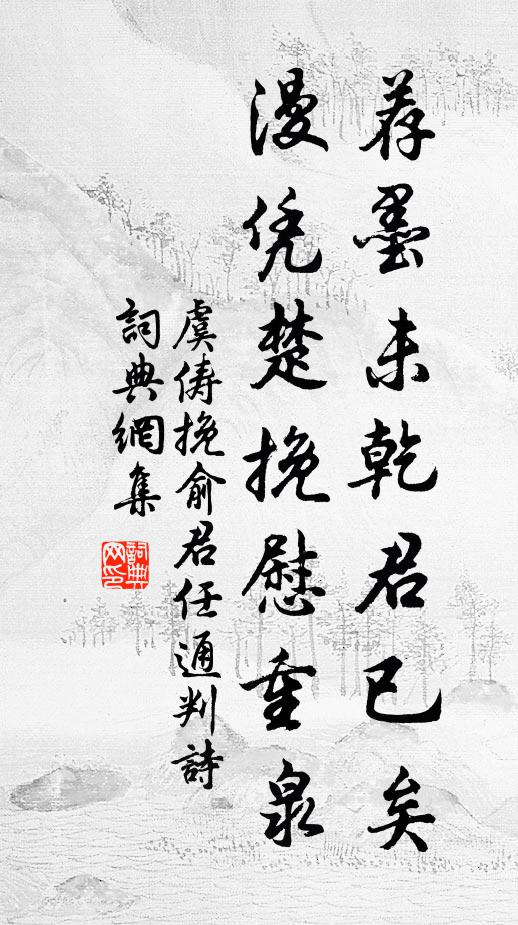 荐墨未乾君已矣
漫凭楚挽慰重泉
虞俦挽俞君任通判詩
詞典網集
詞典网印